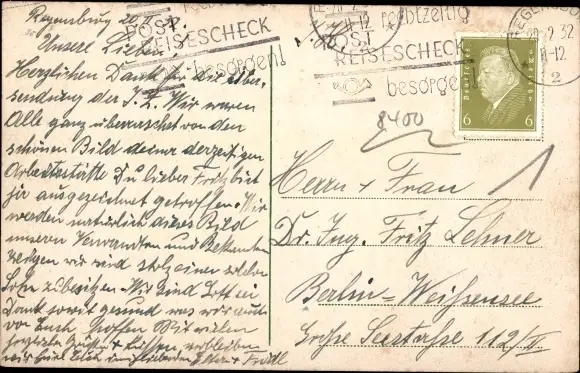 Regensburg 20.II.
Unsere Lieben!
Herzlichen Dank für die Über-
sendung der I.Z. Wir waren
Alle ganz überrascht von den
schönen Bild deiner derzeitigen
Arbeitsstätte Du lieber Fritz bist
ja ausgezeichnet getroffen. Wir
werden natürlich dieses Bild
unseren Verwandten und Bekannten
zeigen wir sind stolz einen solchen
Sohn zu besitzen. Wir sind Gott sei
Dank soweit gesund was wir auch
von Euch hoffen. Mit vielen
herzlichen Grüßen & Küssen, verbleiben
wir Eure Euch Eltern & Friedl
rechtzeitig
POST
REISESCHECK
besorgen!
11-12 rechtzeitig
POST
REISESCHECK
besorgen
REGENSBURG
2 32
11-12
2
Deutsches Reich
6 6
8400
Herrn & Frau
1
Dr. Ing. Fritz Lehner
Berlin-Weißensee
Große Seestraße 112/II